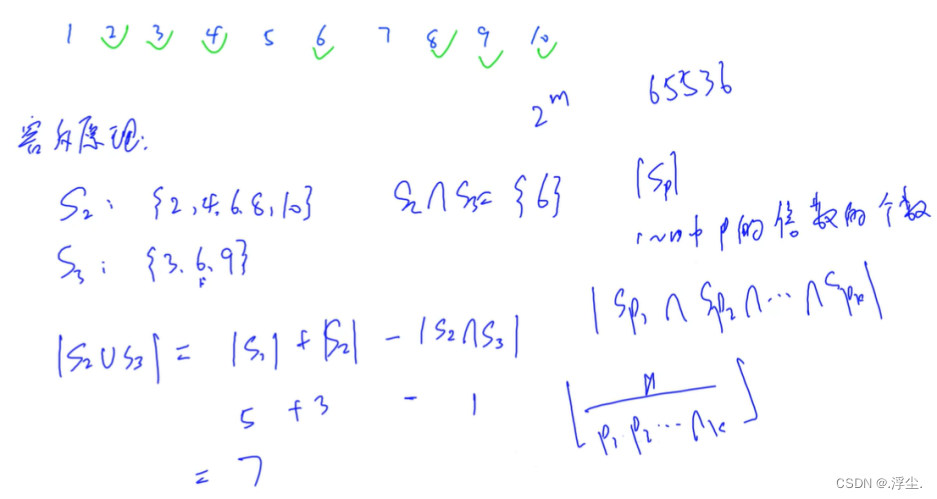 1 2 3 4 5 6 7 8 9 10
2^m 65536
容斥原理:
S₂: {2,4.6.8,10} S₂∩S₃= {6} |Sp|
1~n中p的倍数的个数
S₃: {3.6.9}
|Sp₁ ∩ Sp₂ ∩ ··· ∩ Spₖ|
|S₂∪S₃| = |S₁| + |S₂| - |S₂∩S₃|
5 +3 - 1
⌊n / p₁·p₂···pₖ⌋
= 7
CSDN @.浮尘.